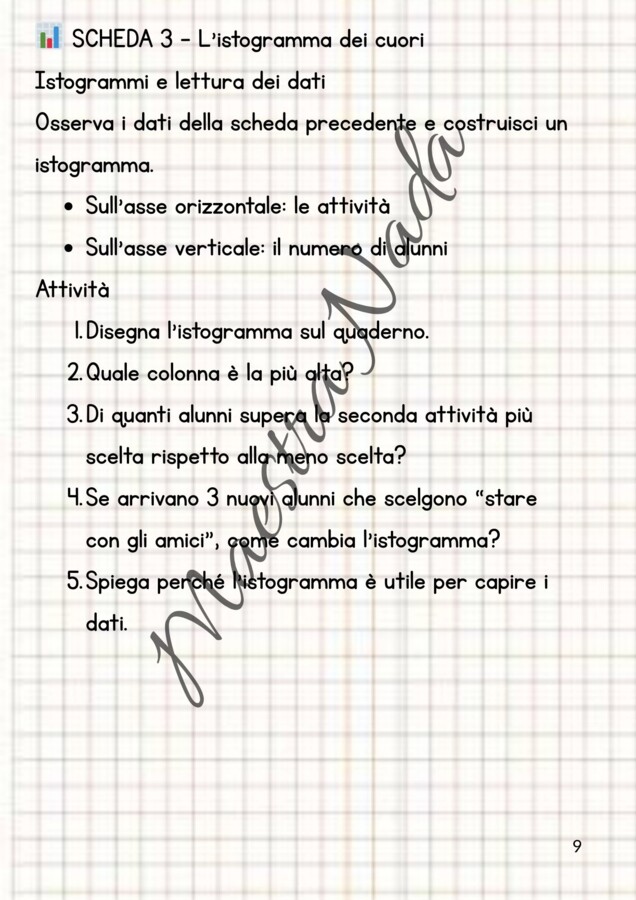 📊 SCHEDA 3 - L'istogramma dei cuori
Istogrammi e lettura dei dati
Osserva i dati della scheda precedente e costruisci un
istogramma.
• Sull'asse orizzontale: le attività
• Sull'asse verticale: il numero di alunni
Attività
1. Disegna l'istogramma sul quaderno.
2. Quale colonna è la più alta?
3. Di quanti alunni supera la seconda attività più
scelta rispetto alla meno scelta?
4. Se arrivano 3 nuovi alunni che scelgono "stare
con gli amici", come cambia l'istogramma?
5. Spiega perché l'istogramma è utile per capire i
dati.
Maestra Nada
9